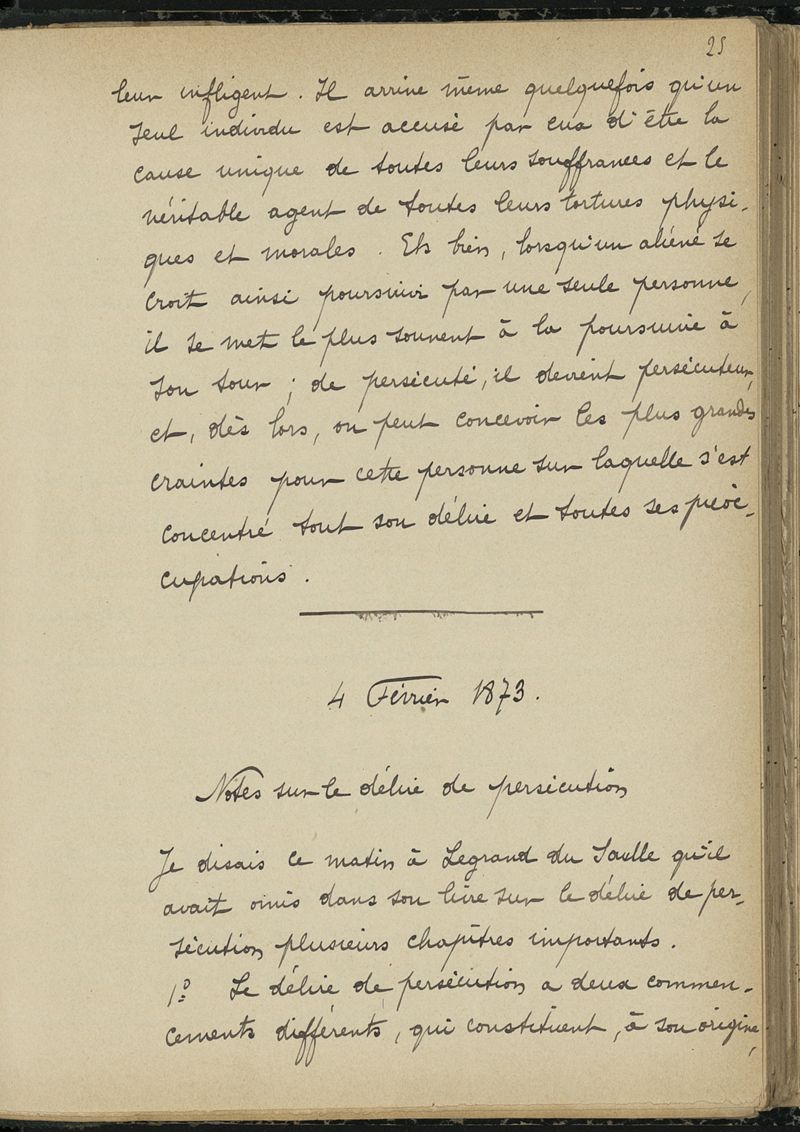 25
leur infligent. Il arrive même quelquefois qu'un
seul individu est accusé par eux d'être la
cause unique de toutes leurs souffrances et le
véritable agent de toutes leurs tortures physi-
ques et morales. Eh bien, lorsqu'un aliéné se
croit ainsi poursuivi par une seule personne,
il se met le plus souvent à la poursuivre à
son tour ; de persécuté, il devient persécuteur,
et, dès lors, on peut concevoir les plus grandes
craintes pour cette personne sur laquelle s'est
concentré tout son délire et toutes ses préoc-
cupations.
4 Février 1873.
Notes sur le délire de persécution
Je disais ce matin à Legrand du Saulle qu'il
avait omis dans son livre sur le délire de per-
sécution plusieurs chapitres importants.
1º Le délire de persécution a deux commen-
cements différents, qui constituent, à son origine,